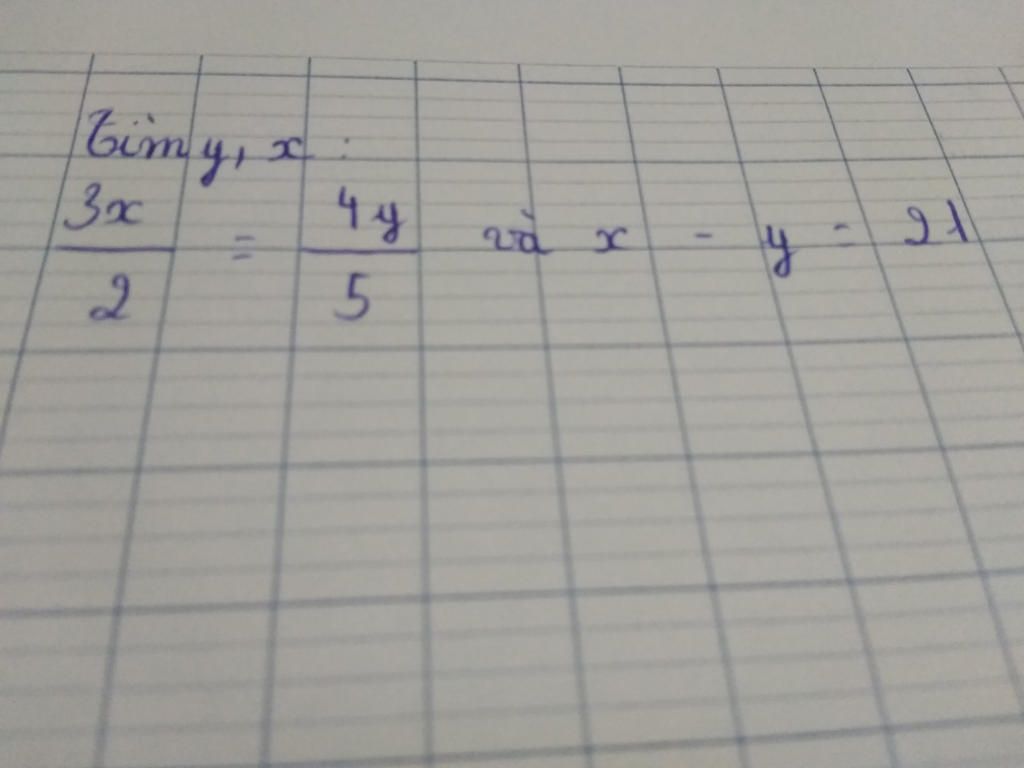 Tìm y, x :
3x/2 = 4y/5 và x - y = 21